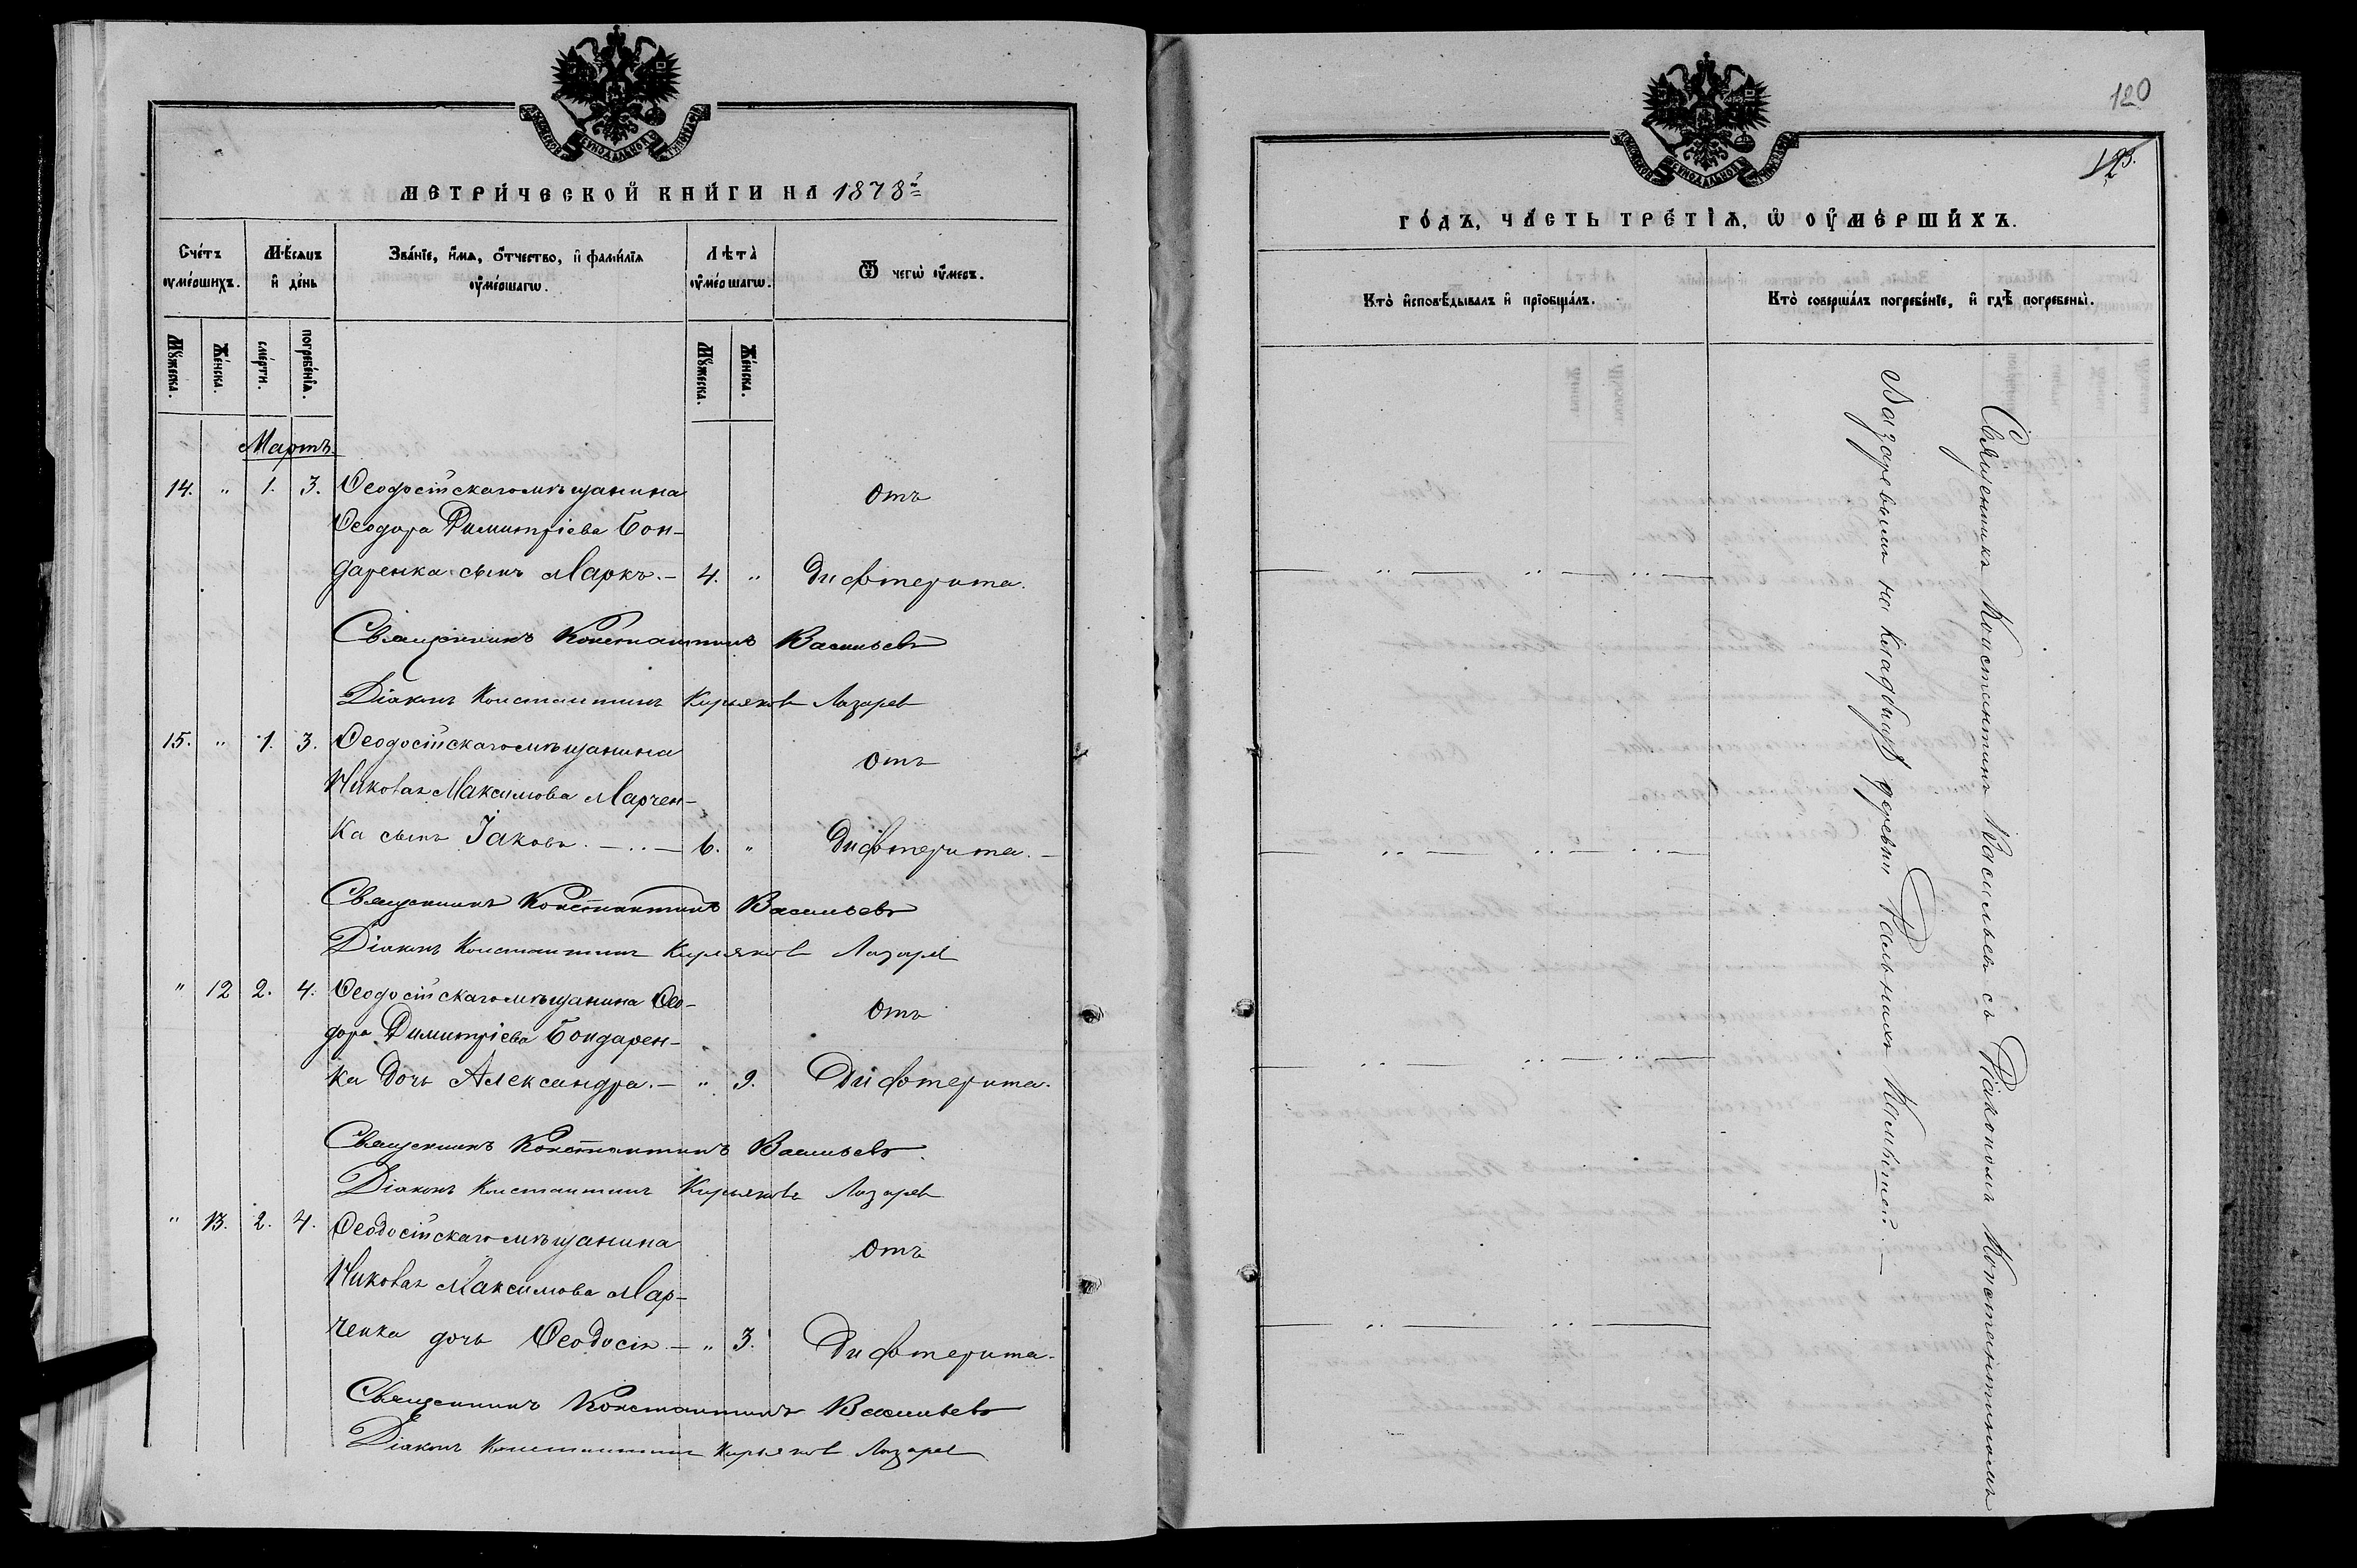 МЕТРИ́ЧЕСКОЙ КНИ́ГИ НА 1878й
Сче́тъ ᲂу҆ме́ршихъ.
Мѣ́сѧцъ и҆ де́нь
Зва́нїе, и҆́мѧ, ѻ҆́тчество, и҆ фамі́лїѧ ᲂу҆ме́ршагѡ.
Лѣ́та ᲂу҆ме́ршагѡ.
Ѿ чегѡ̀ ᲂу҆́меръ.
Мꙋ́жеска.
Же́нска.
сме́рти.
погребе́нїѧ.
Мꙋ́жеска.
Же́нска.
Мартъ.
14. " 1. 3. Ѳеодосійскаго мѣщанина
Отъ
Ѳеодора Димитріева Бон-
даренка сынъ Маркъ. – 4. " Дифтерита.
Священникъ Константинъ Васильевъ
Діаконъ Константинъ Лазарев
15. " 1. 3. Ѳеодосійскаго мѣщанина
Отъ
Николая Максимова Марчен-
ка сынъ Іаковъ. – .. – 6. " Дифтерита. –
Священникъ Константинъ Васильевъ
Діаконъ Константинъ Лазарев
" 12 2. 4. Ѳеодосійскаго мѣщанина Ѳео-
Отъ
дора Димитріева Бондарен-
ка дочь Александра. – " 9. Дифтерита.
Священникъ Константинъ Васильевъ
Діаконъ Константинъ Лазарев
" 13. 2. 4. Ѳеодосійскаго мѣщанина
Отъ
Николая Максимова Мар-
ченка дочь Ѳеодосія – " 3. Дифтерита.
Священникъ Константинъ Васильевъ
Діаконъ Константинъ Лазарев
120
ГО́ДЪ, ЧА́СТЬ ТРЕ́ТЇѦ, Ѡ҆ ОУ҆МЕ́РШИХЪ.
Кто̀ и҆сповѣ́дывалъ и҆ прїобща́лъ.
Кто̀ соверша́лъ погребе́нїе, и҆ гдѣ̀ погребены̀.
Священникъ Константинъ Васильевъ съ Діакономъ Константиномъ
Лазаревымъ на кладбищѣ деревни Дальнихъ Камышей. –